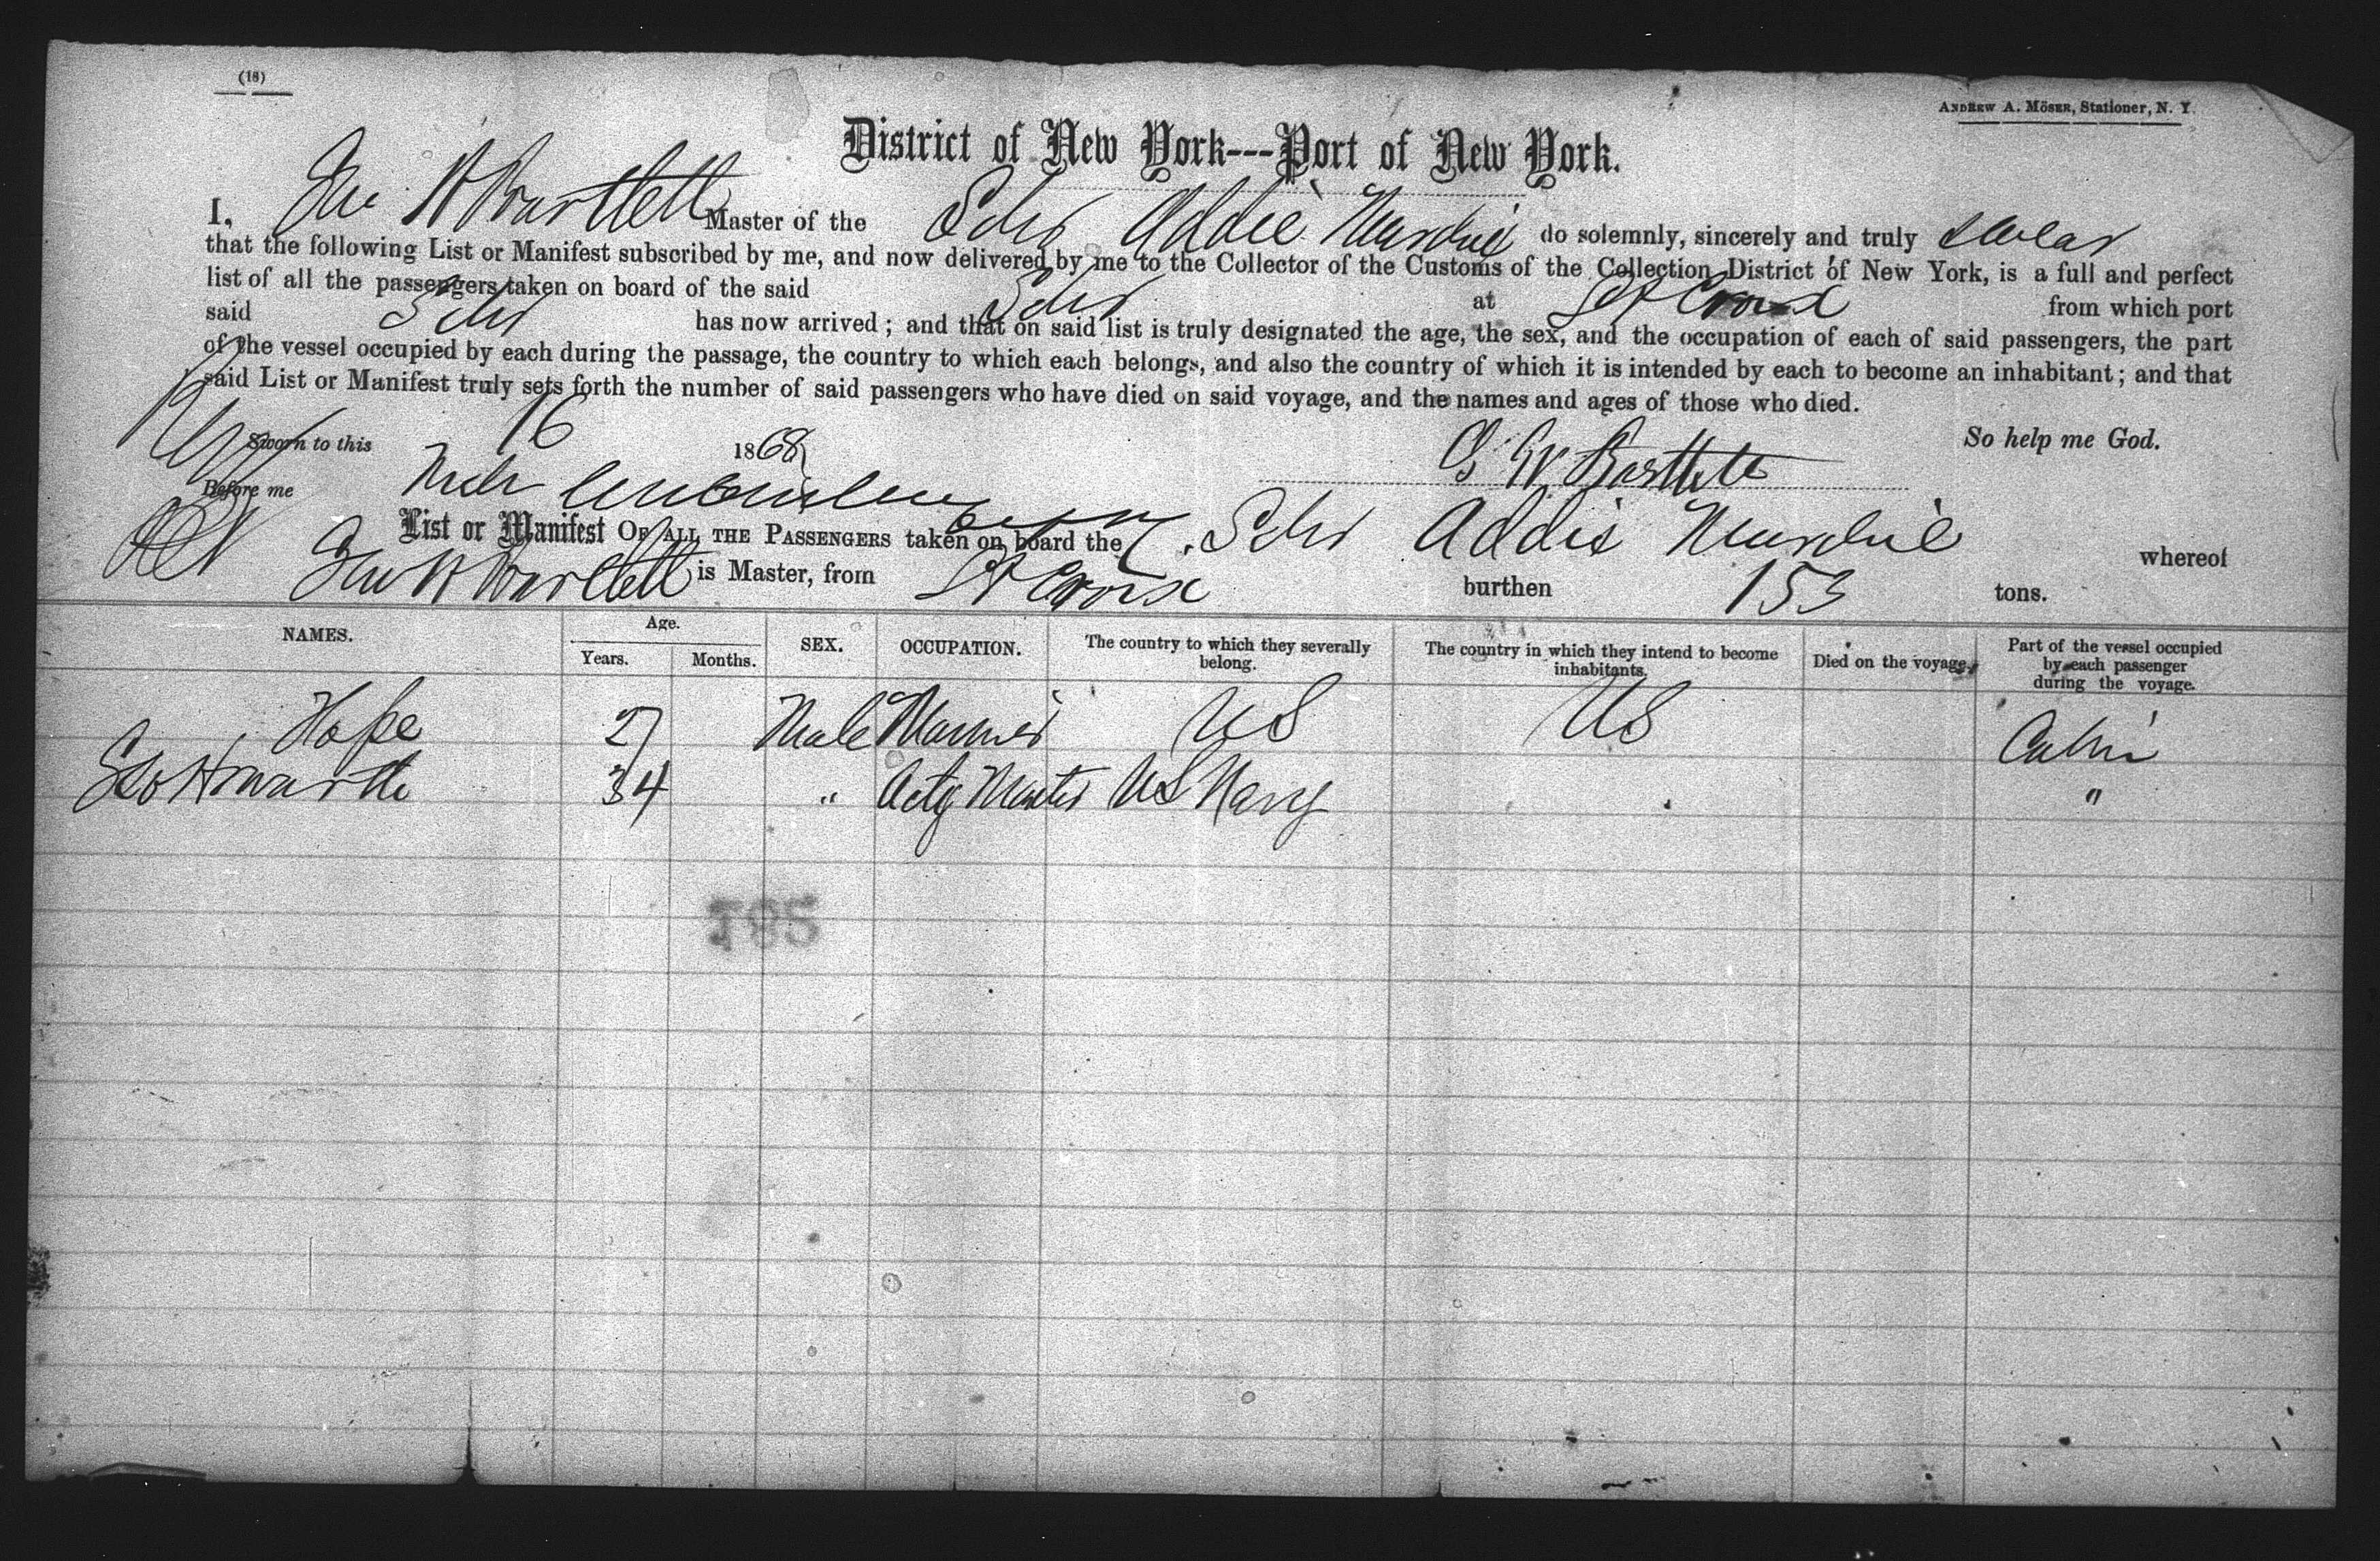 (18)
ANDREW A. MÖSER, Stationer, N. Y.
District of New York---Port of New York.
I, Geo W Bartlett Master of the Schr Addie do solemnly, sincerely and truly swear
that the following List or Manifest subscribed by me, and now delivered by me to the Collector of the Customs of the Collection District of New York, is a full and perfect
list of all the passengers taken on board of the said Schr at St Croix from which port
said Schr has now arrived; and that on said list is truly designated the age, the sex, and the occupation of each of said passengers, the part
of the vessel occupied by each during the passage, the country to which each belongs, and also the country of which it is intended by each to become an inhabitant; and that
said List or Manifest truly sets forth the number of said passengers who have died on said voyage, and the names and ages of those who died.
Sworn to this 16 1868 So help me God.
G W Bartlett
Before me
List or Manifest OF ALL THE PASSENGERS taken on board the Schr Addie whereof
Geo W Bartlett is Master, from St Croix burthen 153 tons.
NAMES. Age. Years. Months. SEX. OCCUPATION. The country to which they severally belong. The country in which they intend to become inhabitants. Died on the voyage. Part of the vessel occupied by each passenger during the voyage.
Hope 27 Male Mariner US US Cabin
Geo Howarth 34 " Actg Master US Navy "